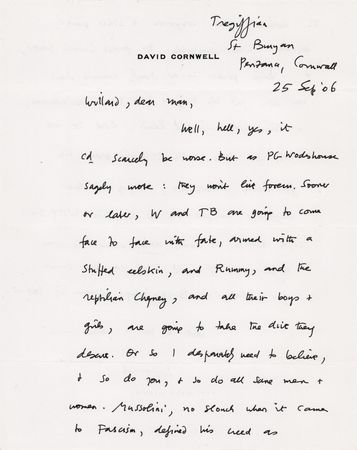 Tregiffian
St Buryan
DAVID CORNWELL
Penzance, Cornwall
25 Sep '06
Willard, dear man,
Well, hell, yes, it
cd scarcely be worse. But as PG Wodehouse
sagely wrote: they won't live forever. Sooner
or later, W and TB are going to come
face to face with fate, armed with a
stuffed eelskin, and Rummy, and the
reptilian Cheney, and all their boys +
girls, are going to take the dive they
deserve. Or so I desperately need to believe,
+ so do you, + so do all sane men +
women. Mussolini, no slouch when it came
to Fascism, defined his creed as